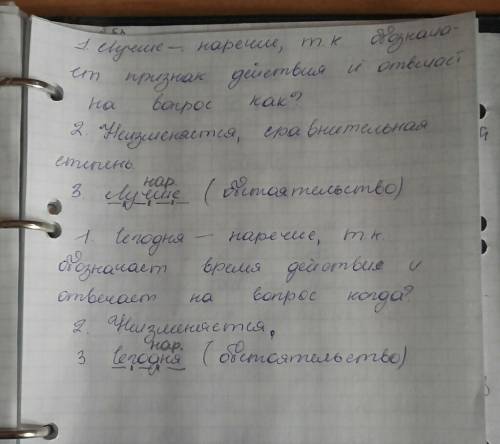 1. Лучше – наречие, т.к. обознача-
ет признак действия и отвечает
на вопрос как?
2. Неизменяется, сравнительная
степень.
нар.
3 Лучше (обстоятельство)
1. Сегодня – наречие, т.к.
обозначает время действия и
отвечает на вопрос когда?
2. Неизменяется,
нар.
3 Сегодня (обстоятельство)